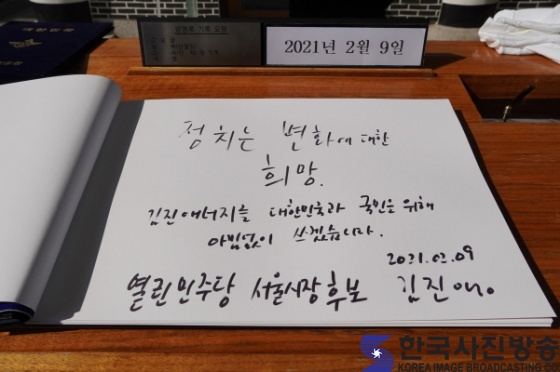 방명록 기록 요령
2021년 2월 9일
정치는 변화에 대한
희망.
김진애너지를 대한민국과 국민을 위해
아낌없이 쓰겠습니다.
2021.02.09
열린민주당 서울시장 후보 김진애.
한국사진방송
KOREA IMAGE BROADCASTING